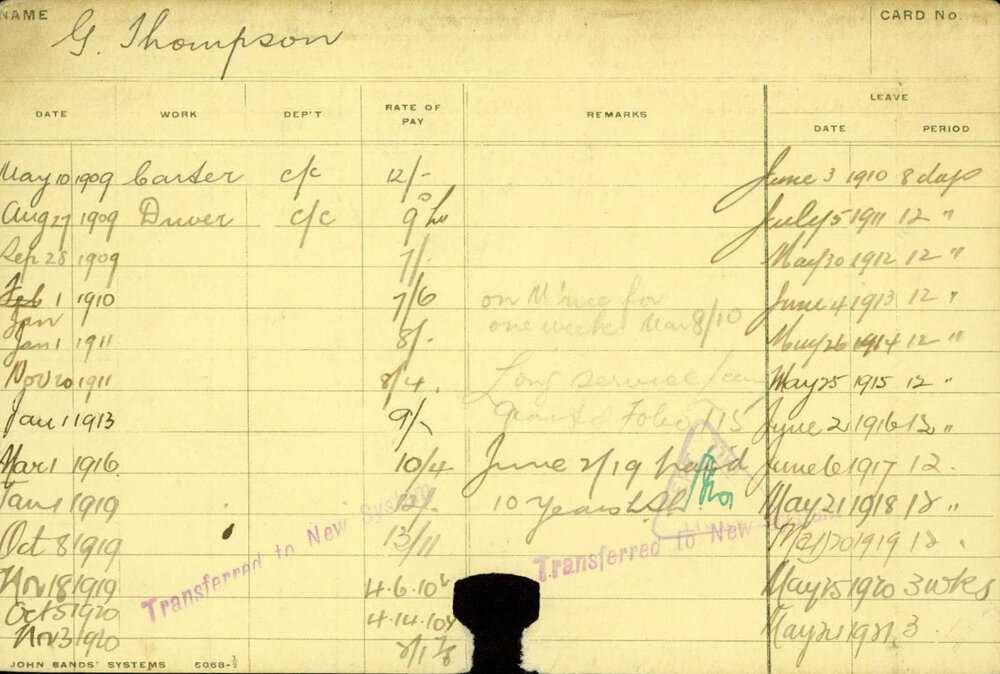 NAME G. Thompson CARD No.
DATE WORK DEP'T RATE OF PAY REMARKS LEAVE
DATE PERIOD
May 10 1909 Carter c/c 12/- June 3 1910 8 days
Aug 27 1909 Driver c/c 9 July 5 1911 12 "
Sep 28 1909 7/- May 30 1912 12 "
Feb 1 1910 7/6 on M'nce for June 4 1913 12 "
Jan
Jan 1 1911 8/- one week Mar 8/10 May 26 1914 12 "
Nov 20 1911 8/4. Long service May 25 1915 12 "
Jan 1 1913 9/- Granted Folio 115 June 2 1916 12 "
Mar 1 1916 10/4 June 2/19 paid June 6 1917 12.
Jan 1 1919 10 Years May 21 1918 12 "
Oct 8 1919 13/11 May 20 1919 12.
Nov 18 1919 4.6.10 May 25 1920 3 wks
Oct 5 1920 4.14.10
Nov 3 1920 May 24 1921 3
Transferred to New System
Transferred to New
JOHN SANDS' SYSTEMS 5068-